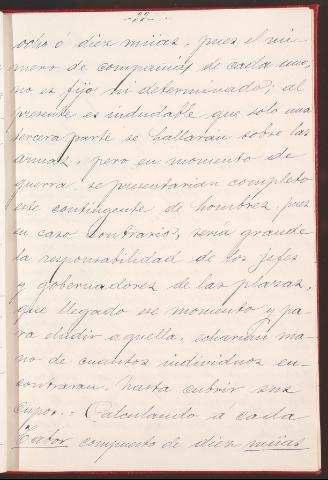 -22-
ocho ó diez miias, pues el nú-
mero de compañias de cada uno,
no es fijo ni determinado; al
presente es indudable que solo una
tercera parte se hallarán sobre las
armas, pero en momento de
guerra se presentarian completo
este contingente de hombres, pues
en caso contrario, seria grande
la responsabilidad de los jefes
y gobernadores de las plazas,
que llegado ese momento y pa-
ra eludir aquella, echarian ma-
no de cuantos individuos en-
contraran, hasta cubrir sus
cupos.= Calculando á cada
Tabor compuesto de diez miias